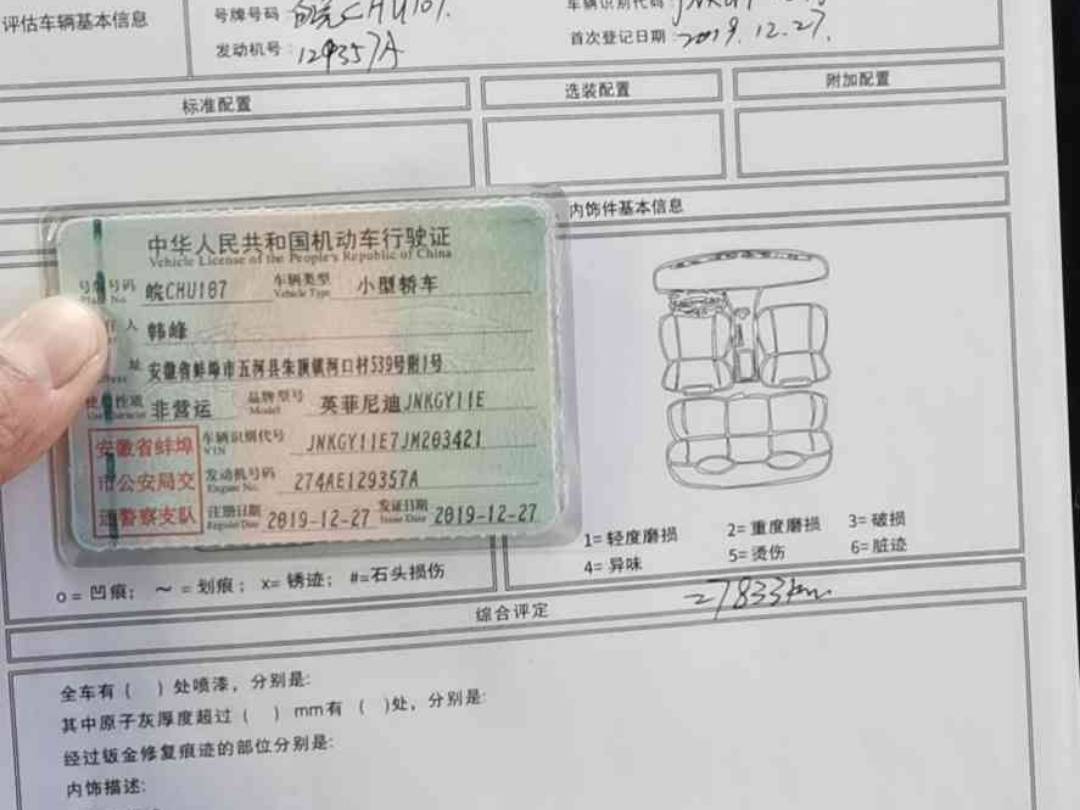 评估车辆基本信息
号牌号码 皖CHU187.
车辆识别代码:
发动机号: 129357A
首次登记日期: 2019.12.27.
标准配置
选装配置
附加配置
内饰件基本信息
中华人民共和国机动车行驶证
Vehicle License of the People's Republic of China
号牌号码 皖CHU187 车辆类型 小型轿车
Plate No. Vehicle Type
人 韩峰
址 安徽省蚌埠市五河县朱顶镇河口村539号附1号
使用性质 非营运 品牌型号 英菲尼迪JNKGY11E
Use Character Model
安徽省蚌埠
市公安局交
通警察支队
车辆识别代号 JNKGY11E7JM203421
VIN
发动机号码 274AE129357A
Engine No.
注册日期 2019-12-27 发证日期 2019-12-27
Register Date Issue Date
1=轻度磨损 2=重度磨损 3=破损
4=异味 5=烫伤 6=脏迹
o=凹痕; ~=划痕; x=锈迹; #=石头损伤
综合评定
27833km
全车有( )处喷漆，分别是:
其中原子灰厚度超过( )mm有( )处，分别是:
经过钣金修复痕迹的部位分别是:
内饰描述: